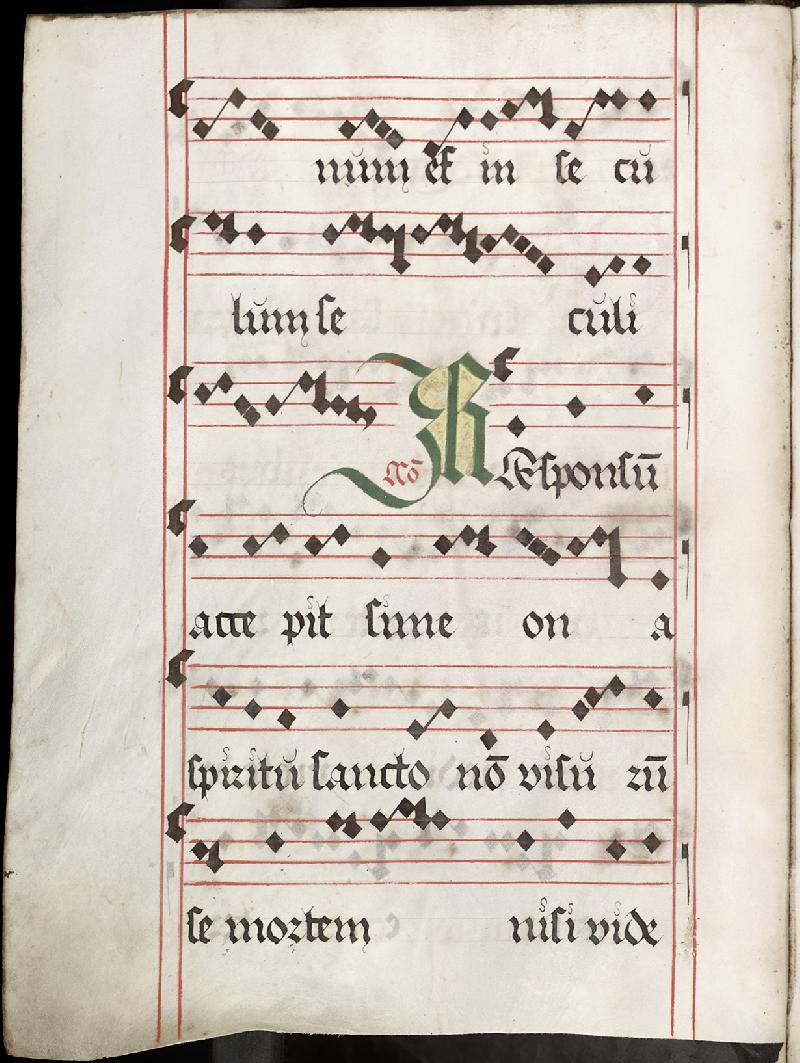 num et in se cu
lum se culi
Año REsponsū
acce pit sime on a
spiritu sancto nō visu rū
se mortem nisi vide